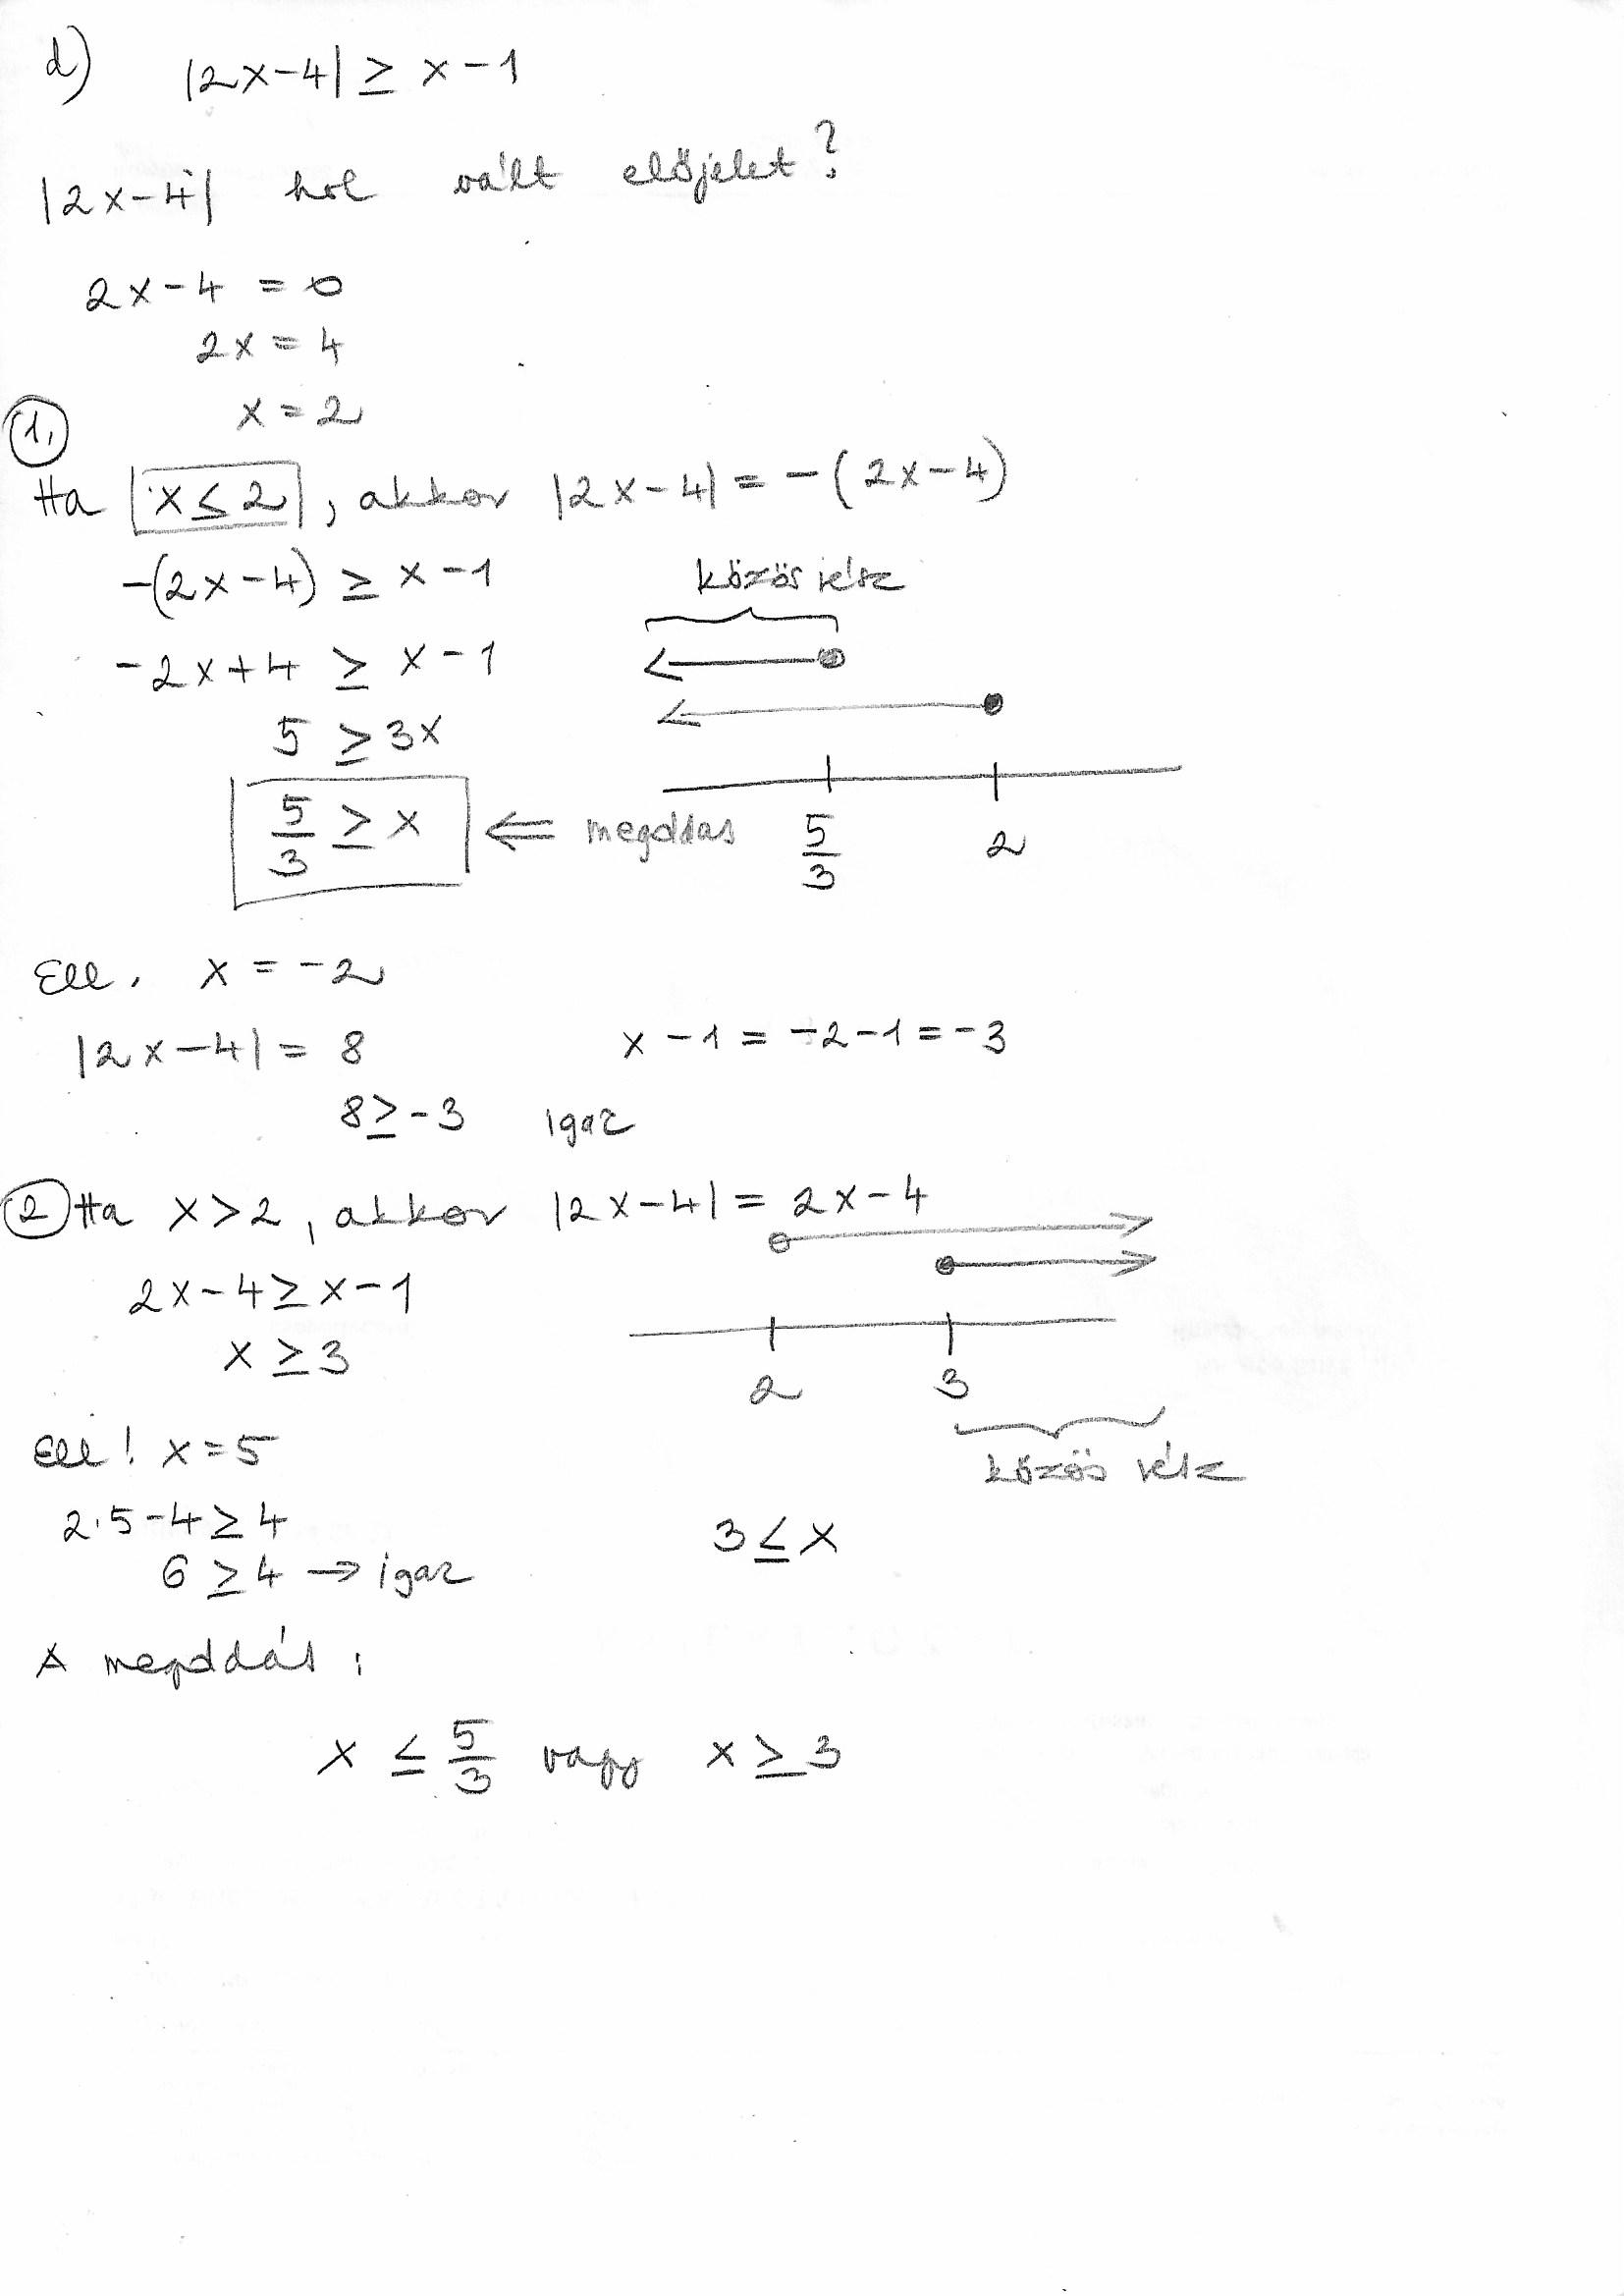 d) |2x-4| ≥ x-1
|2x-4| hol vált előjelet?
2x-4 = 0
2x = 4
x = 2
1.
Ha x ≤ 2, akkor |2x-4| = -(2x-4)
-(2x-4) ≥ x-1
közös rész
-2x+4 ≥ x-1
5 ≥ 3x
5/3 ≥ x ⇐ megoldás
5/3 2
Ell. x = -2
|2x-4| = 8 x-1 = -2-1 = -3
8 ≥ -3 igaz
2 Ha x>2, akkor |2x-4| = 2x-4
2x-4 ≥ x-1
x ≥ 3
2 3
Ell! x=5
közös rész
2·5-4 ≥ 4
3 ≤ x
6 ≥ 4 → igaz
A megoldás:
x ≤ 5/3 vagy x ≥ 3